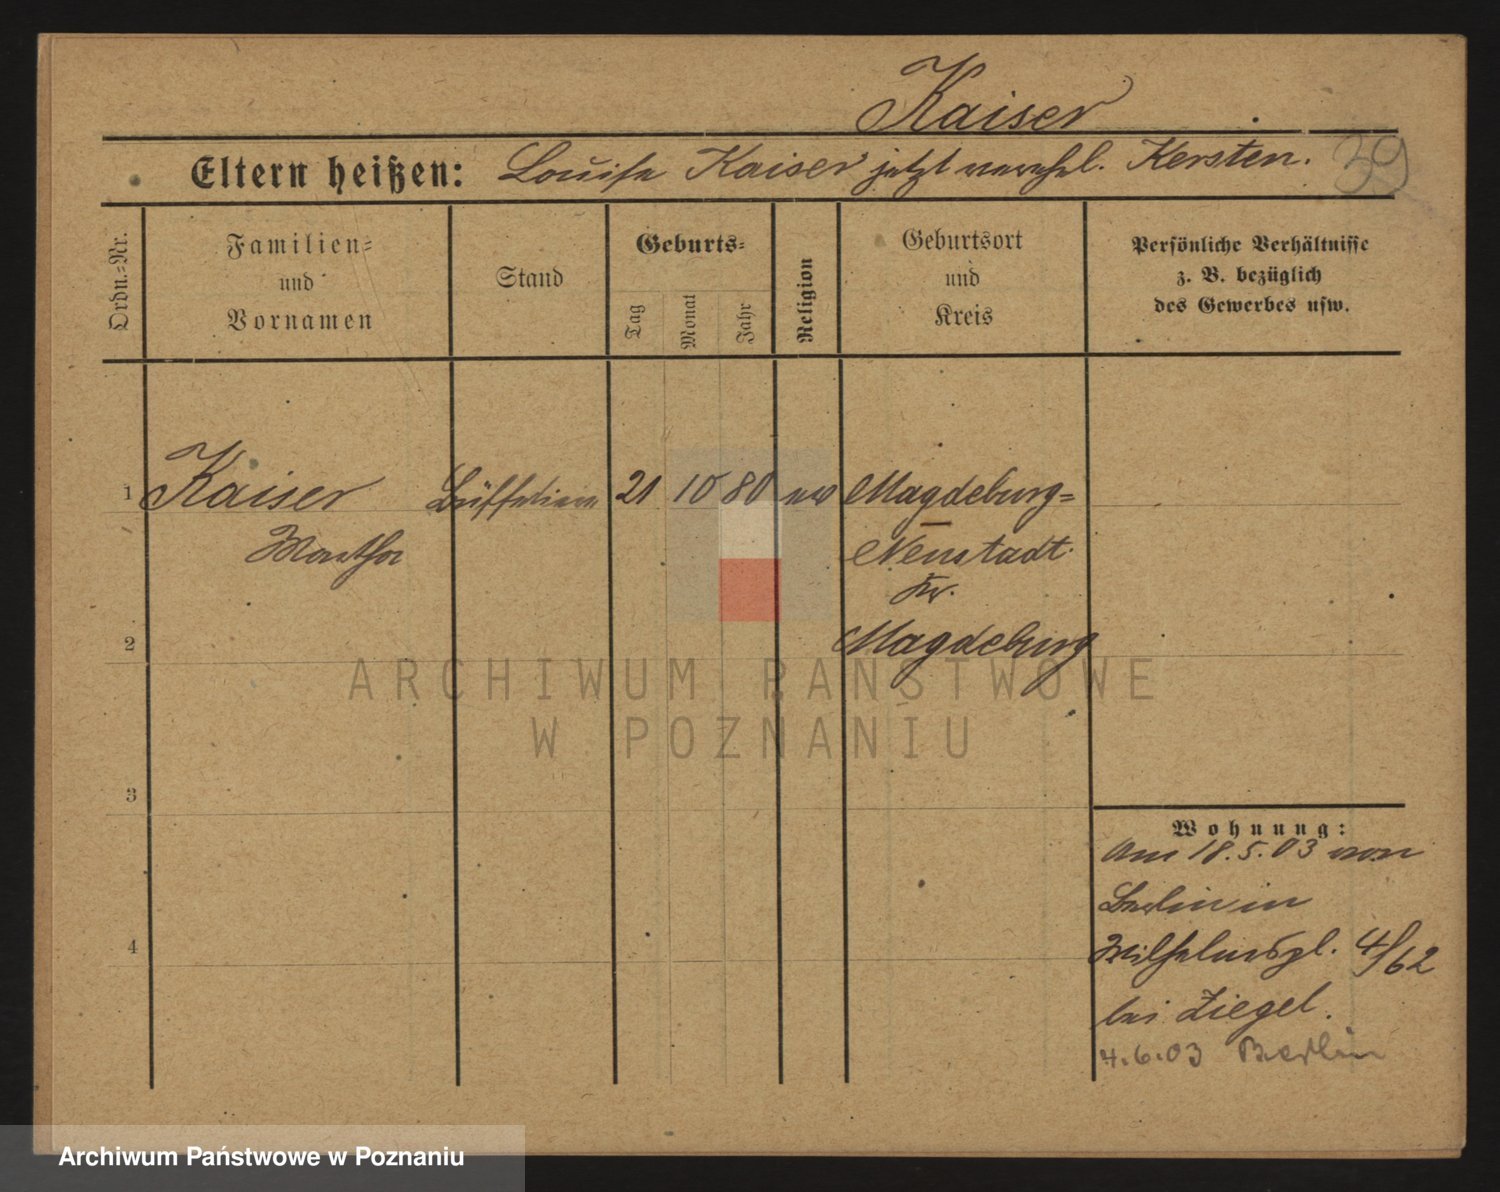 Kaiser
Eltern heißen: Louise Kaiser jetzt verehl. Kersten.
39
Ordn.=Nr.
Familien=
und
Vornamen
Stand
Geburts=
Tag
Monat
Jahr
Religion
Geburtsort
und
Kreis
Persönliche Verhältnisse
z. B. bezüglich
des Gewerbes usw.
1 Kaiser 21 10 80 ev Magdeburg=
Martha
Neustadt
Kr.
2
Magdeburg
ARCHIWUM PAŃSTWOWE
W POZNANIU
3
Wohnung:
Am 18.5.03 von
Berlin in
4
Wilhelmspl. 4/62
bei Ziegel.
4.6.03 Berlin
Archiwum Państwowe w Poznaniu